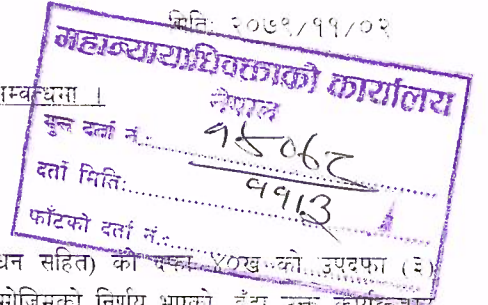 मिति: २०७९/११/०२
महान्यायाधिवक्ताको कार्यालय
नेपाल
म्बन्धमा ।
मुल दर्ता नं.: १५०६८
दर्ता मिति: ११।३
फाँटको दर्ता नं.:
धन सहित) को दफा ४०ख को उपदफा (३)
मोजिमको निर्णय भएको